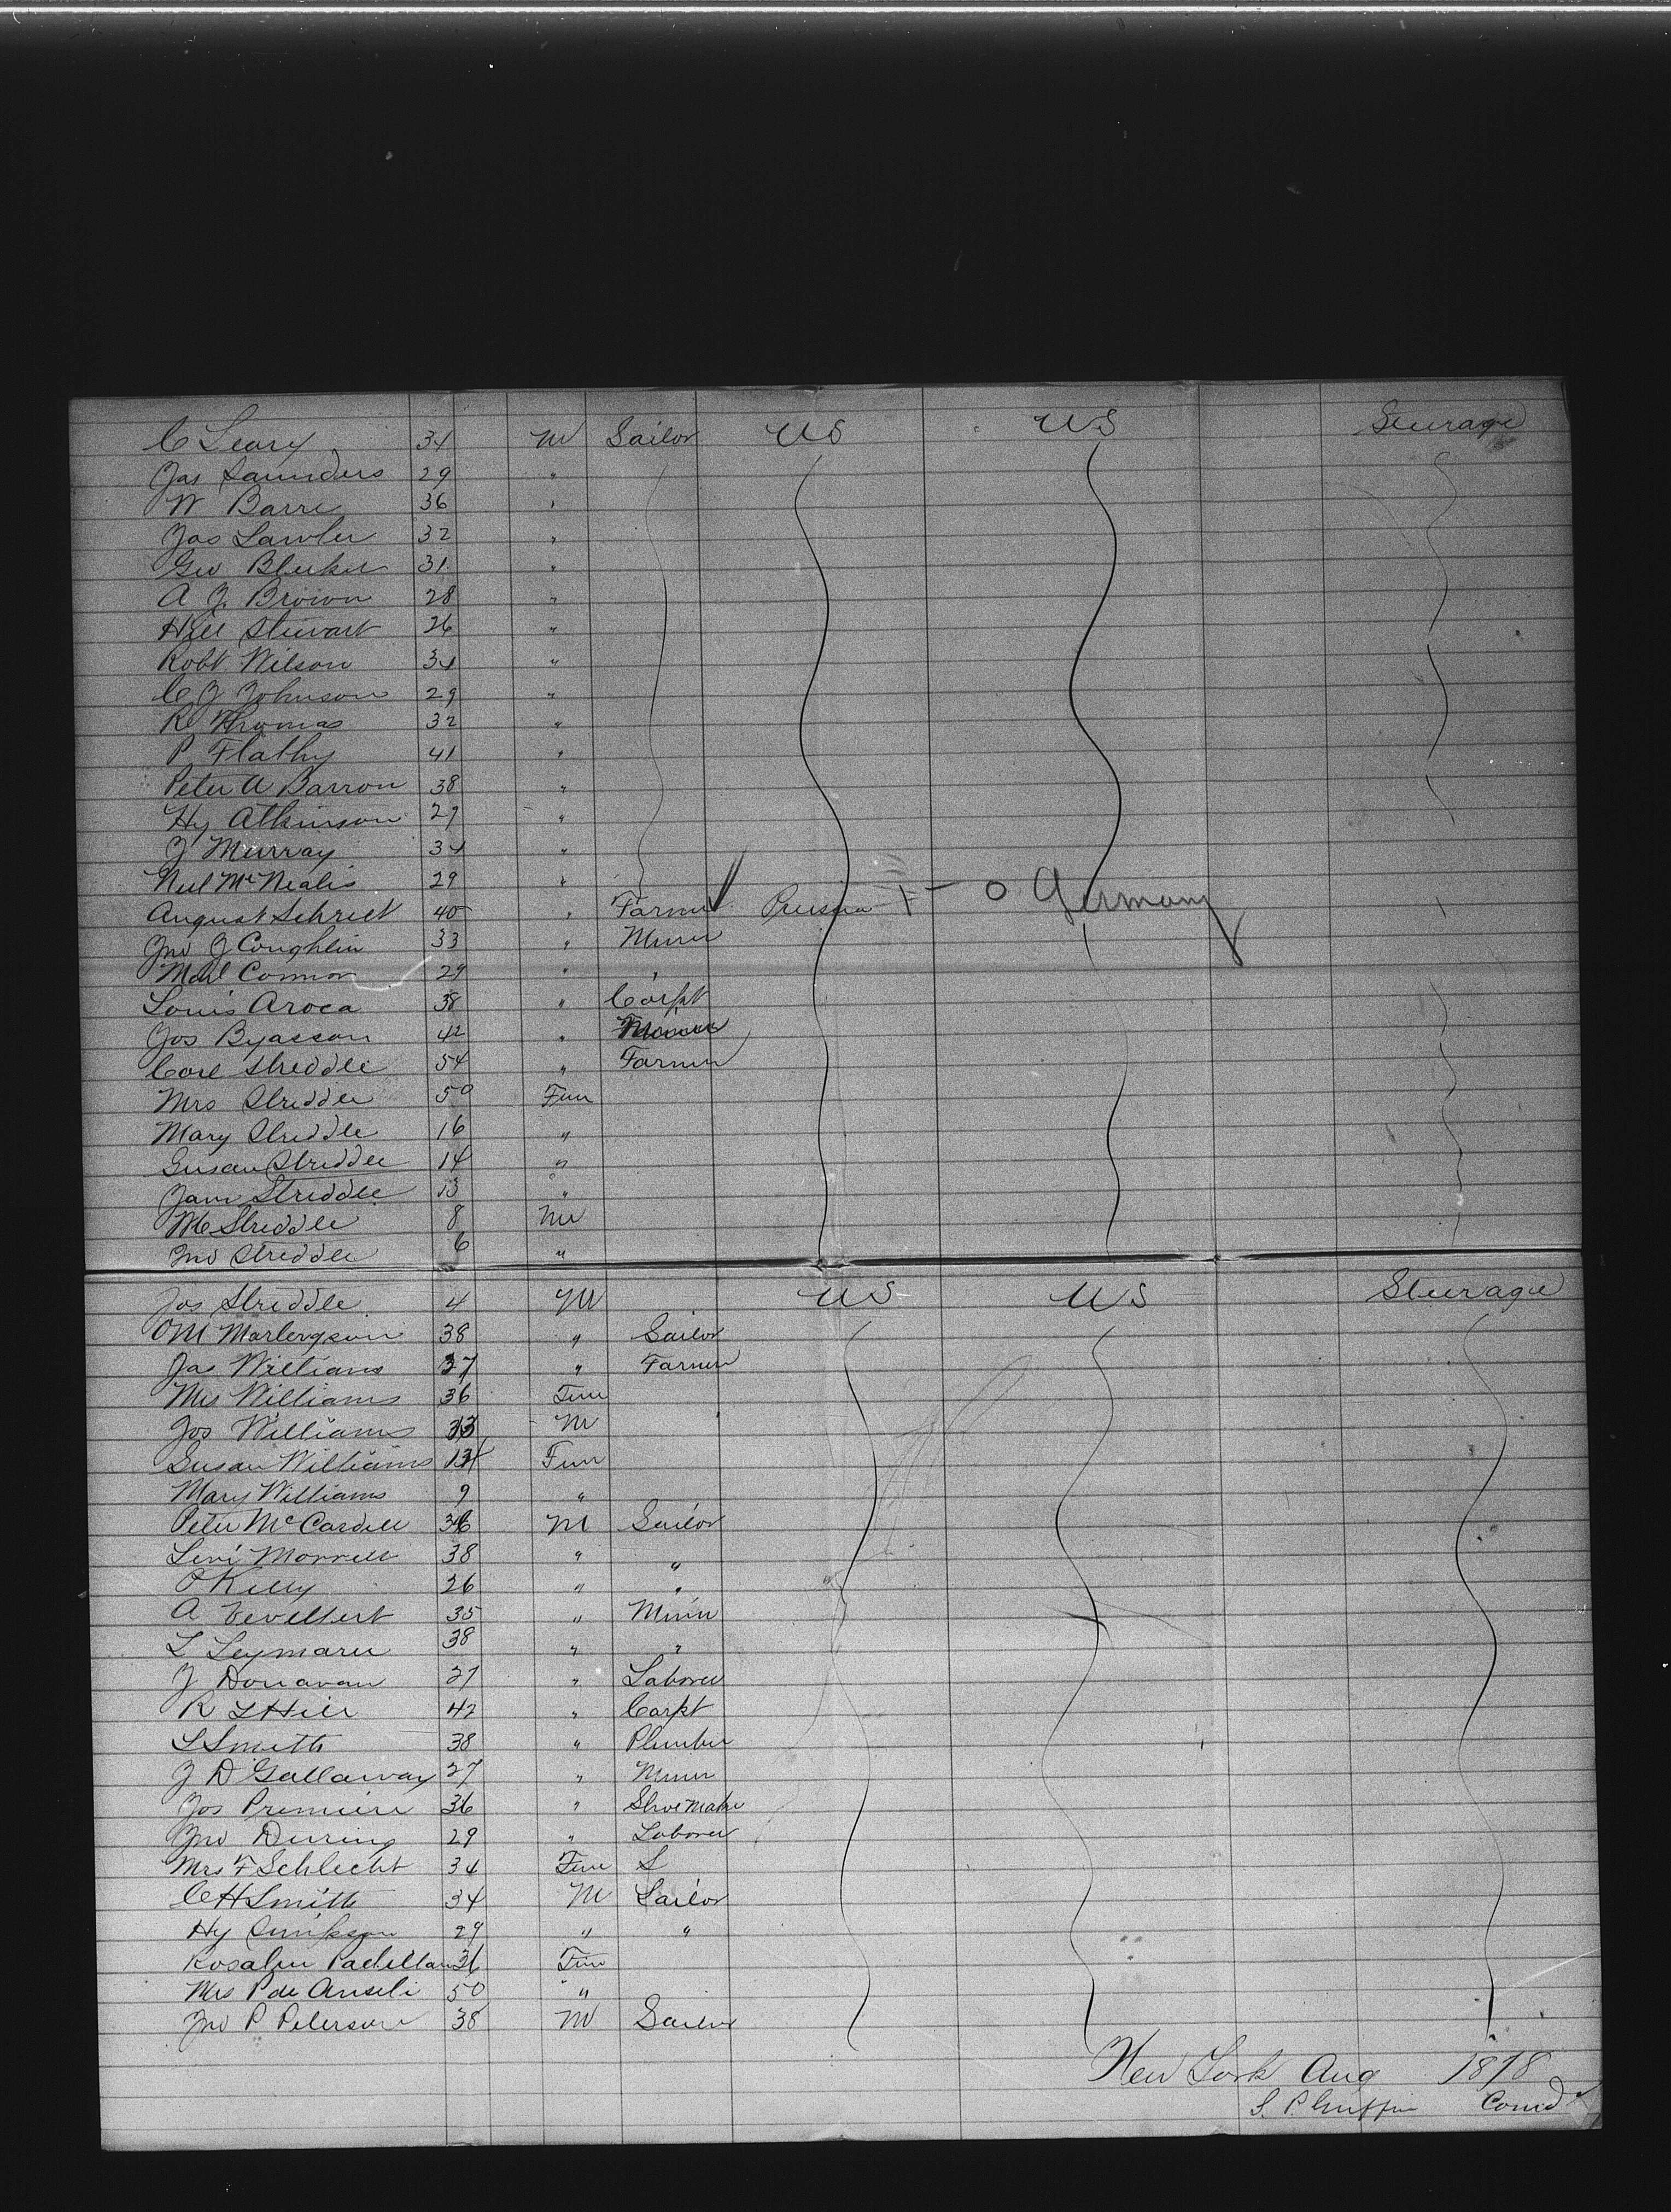 C Leary 34 M Sailor US US Steerage
Jas Saunders 29 "
W Barre 36 "
Jas Lawler 32 "
Geo Bleeker 31 "
A J Brown 28 "
Hill Stewart 26 "
Robt Wilson 34 "
C J Johnson 29 "
R Thomas 32 "
P Flathy 41 "
Peter A Barron 38 "
Hy Atkinson 29 "
J Murray 34 "
Neil McNealis 29 "
August Schriet 40 " Farmer Prussia Germany
Jno J Coughlin 33 " Miner
Connor 29 " "
Louis Aroca 38 " Carpt
Jos Byasson 42 "
Carl Striddle 54 " Farmer
Mrs Striddle 50 Fem
Mary Striddle 16 "
Susan Striddle 14 "
Jane Striddle 13 "
Mc Striddle 8 M
Jno Striddle 6 "
Jos Striddle 4 M US US Steerage
38 " Sailor
Jas Williams 37 " Farmer
Mrs Williams 36 Fem
Jos Williams M
Susan Williams Fem
Mary Williams 9 "
Peter McCardell M Sailor
Levi Morrell 38 " "
P Kelly 26 " "
A 35 " Miner
L Leymarie 38 " "
J Donavan 27 " Laborer
R L Hill 42 " Carpt
L Smith 38 " Plumber
J D Gallaway 27 " Miner
Jos Premiere 36 " Shoemaker
Jno During 29 " Laborer
Mrs F Schlecht 34 Fem S
C H Smith 34 M Sailor
Hy Simpson 29 " "
Rosalie Padilla 36 Fem
Mrs P de Anseli 50 "
Jno P Peterson 38 M Sailor
New York Aug 1878
S. P. Griffin Comdr